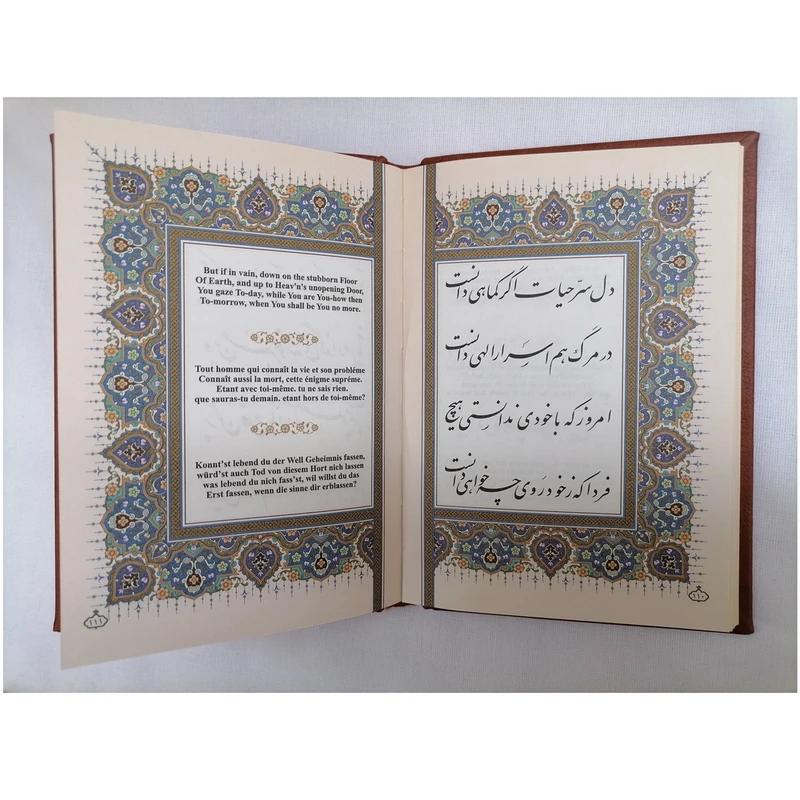 But if in vain, down on the stubborn Floor
Of Earth, and up to Heav'n's unopening Door,
You gaze To-day, while You are You-how then
To-morrow, when You shall be You no more.
Tout homme qui connaît la vie et son probléme
Connaît aussi la mort, cette énigme supréme.
Etant avec toi-même. tu ne sais rien.
que sauras-tu demain. etant hors de toi-même?
Konnt'st lebend du der Well Geheimnis fassen,
würd'st auch Tod von diesem Hort nich lassen
was lebend du nich fass'st, wil willst du das
Erst fassen, wenn die sinne dir erblassen?
۱۱۱
دل سرّ حیات اگر کماهی دانست
در مرگ هم اسرار الهی دانست
امروز که با خودی ندانستی هیچ
فردا که ز خود روی چه خواهی دانست
۱۱۰